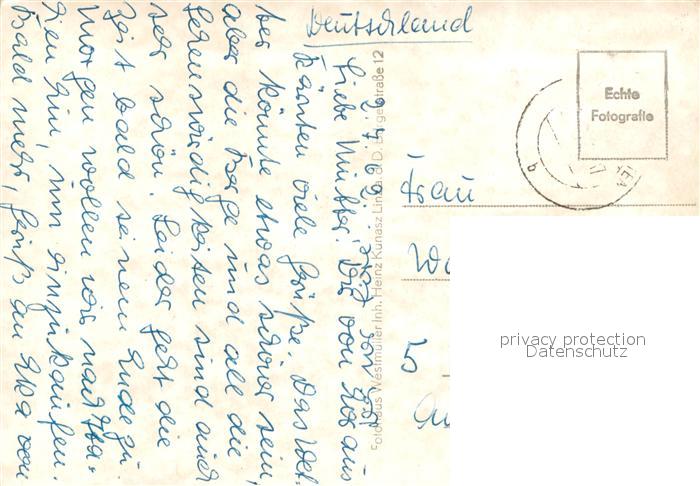 Deutschland
Liebe Mutter! Dir von hier aus
Kärnten viele Grüße. Das Wet-
ter könnte etwas schöner sein,
aber die Berge und all die
Sehenswürdigkeiten sind auch
sehr schön. Leider geht die
Zeit bald seinem Ende zu.
Morgen wollen wir nach Ita-
lien hin, um einzukaufen.
Bald mehr, Gruß an
Fotohaus Westmüller Inh. Heinz Kunasz Linz a. d. D.
straße 12
Echte
Fotografie
Frau
5
privacy protection
Datenschutz